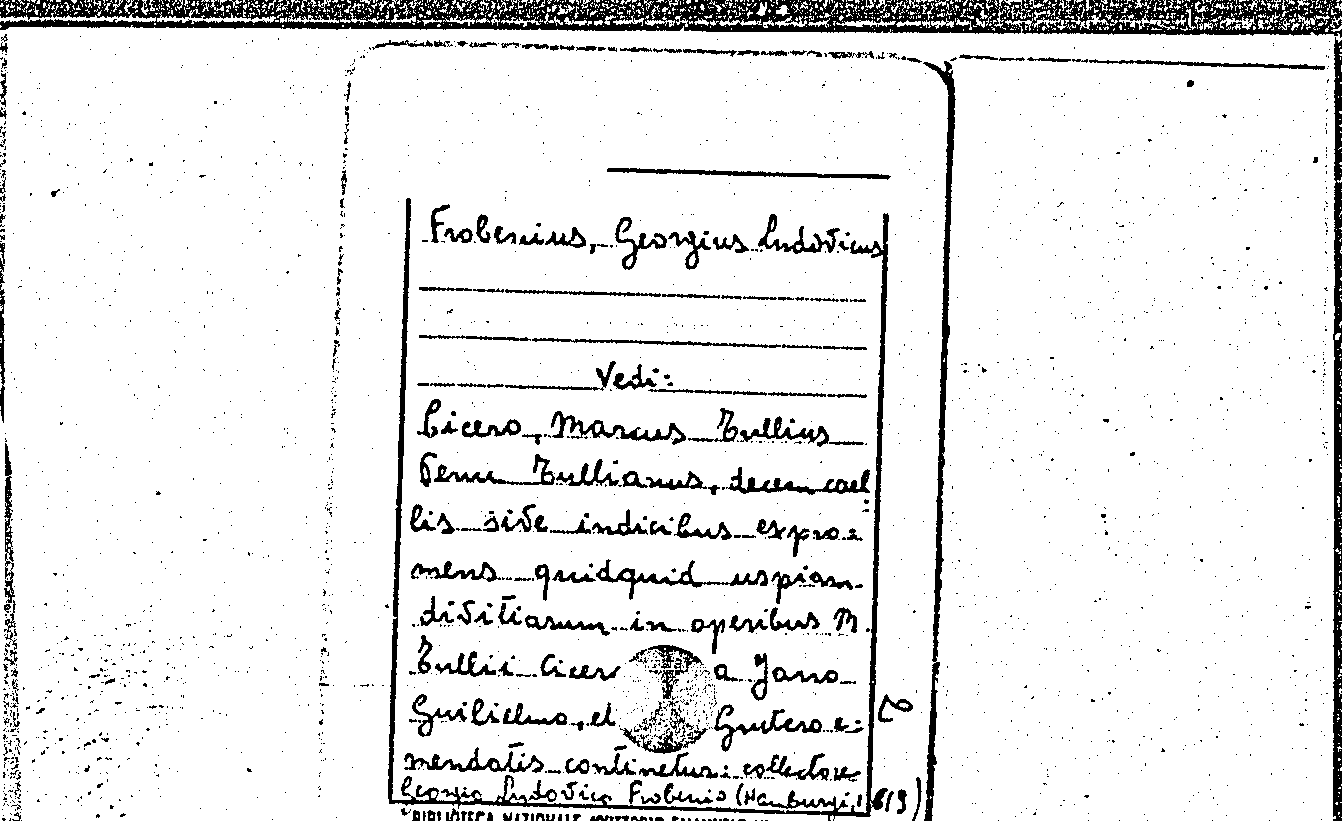 Frobenius, Georgius Ludovicus
Vedi:
Cicero, Marcus Tullius
Penu Tullianus, decem cael
lis sive indicibus expro=
mens quidquid uspiam
divitiarum in operibus M.
Tullii Cicer a Jano
Guilielmo, et Grutero e=
mendatis continetur: collectore
Georgio Ludovico Frobenio (Hamburgi, 1619)
BIBLIOTECA NAZIONALE VITTORIO EMANUELE